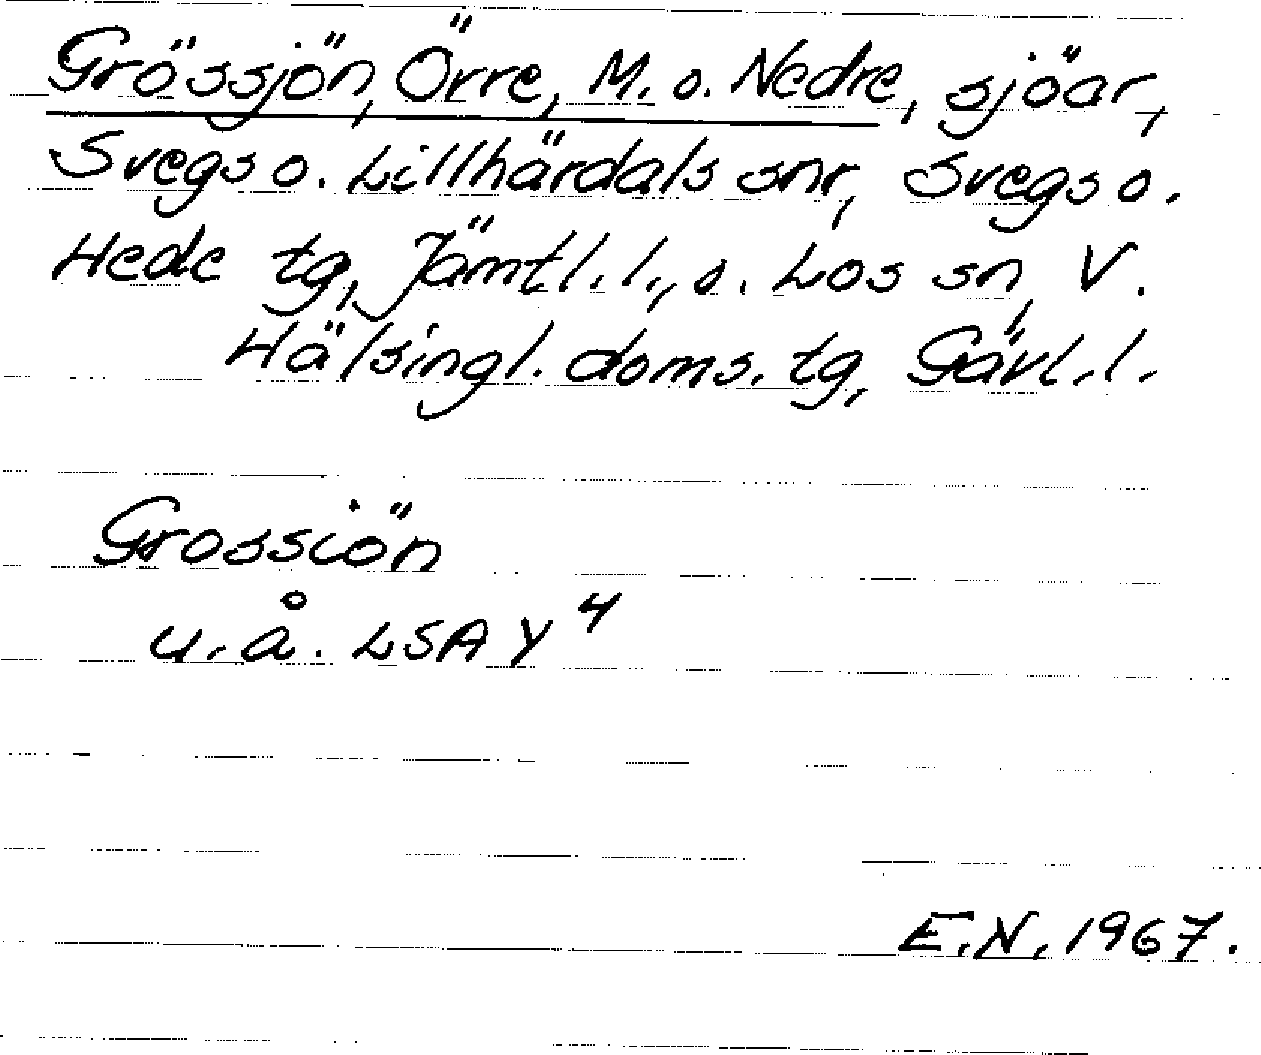 Grössjön, Örre, M. o. Nedre, sjöar,
Svegs o. Lillhärdals snr, Svegs o.
Hede tg, Jämtl. l., o. Los sn, V.
Hälsingl. doms. tg, Gävl. l.
Grossiön
u. å. LSA Y 4
E. N. 1967.